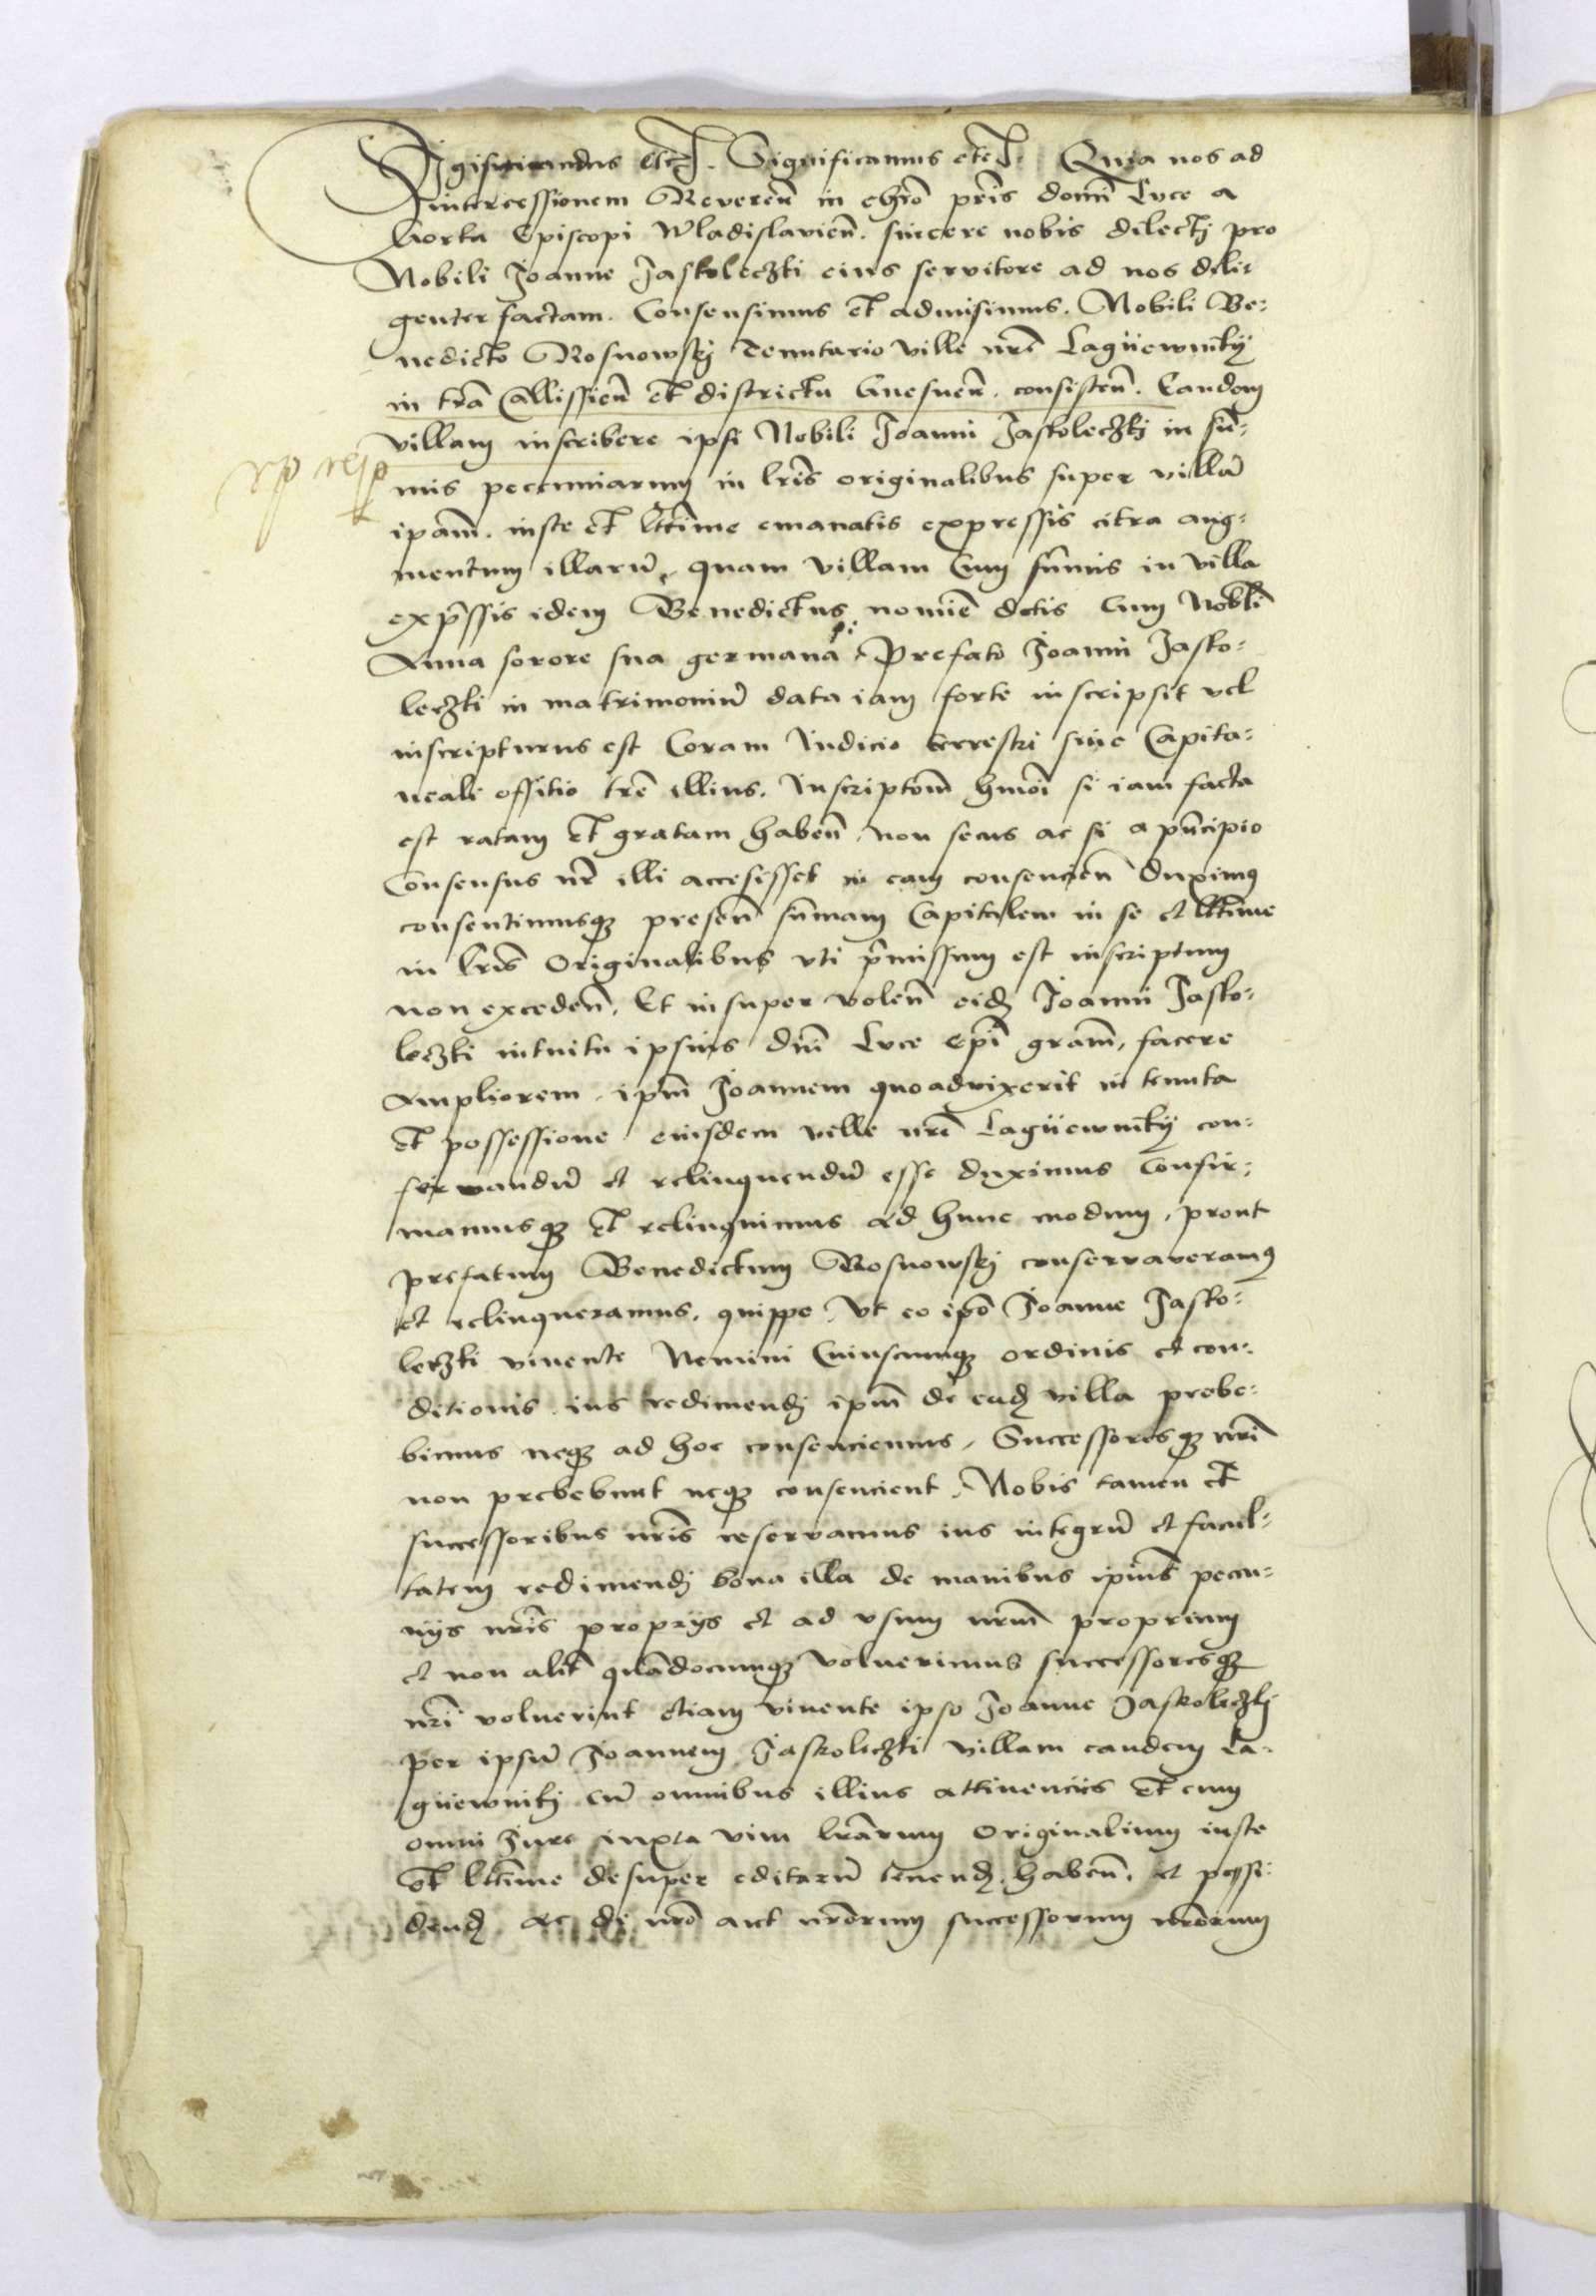 Sigismundus etc. Significamus etc. Quia nos ad
intercessionem Reveren̄ in chrō prīs domī Luce a
Gorka Episcopi Wladislavien̄. sincere nobis dilectj pro
Nobili Joanne Jaskoleczki eius servitore ad nos dili-
genter factam. Consensimus et admisimus. Nobili Be-
nedicto Rosnowskj Tenutario ville nrē Lagüewnikÿ
in trā Callissien̄ et districtu Gnesnen̄. consisten̄. Eandem
villam inscribere ipsi Nobili Joanni Jaskoleczkj in sūm-
mis peccuniarum in lrīs originalibus super villā
ipam̄. iuste et lttīme emanatis expressis citra aug-
mentum illarū, quam villam cum sūmis in villa
exp̄ssis idem Benedictus nomīe dotis cum Nobili
Anna sorore sua germana Prefato Joanni Jasko-
leczki in matrimoniū data iam forte inscripsit vel
inscripturus est Coram Iudicio terrestri sive Capita-
neali offitio trē illius. Inscriptom̄ hmōi si iam facta
est ratam et gratam haben̄. non secus ac si a pn̄cipio
Consensus nr̄ illi accesisset in eam consencien̄ duximus
consentimusq; presen̄ sūmam Capitalem in se et lttīme
in lrīs Originalibus vti p̄missum est inscriptum
non exceden̄. Et insuper volen̄ eid; Joanni Jasko-
leczki intuitu ipsius dnī Luce Epī gram̄, facere
Ampliorem. ipm̄ Joannem quoadvixerit in tenuta
et possessione eiusdem ville nrē Lagüewnikÿ con-
servandū et relinquendū esse duximus Consir-
mamusq; et relinquimus ad hunc modum, prout
prefatum Benedictum Rosnowskj conservaveramus
et relinqueramus. quippe Vt eo ipō Joanne Jasko-
leczki vivente Nemini Cuiuscunq; ordinis et con-
ditionis ius redimendj ipm̄ de ead; villa prebe-
bimus neq; ad hoc consenciemus, Successoresq; nrī
non prebebunt neq; consencient, Nobis tamen et
successoribus nrīs reservamus ius integrū et facul-
tatem redimendj bona illa de manibus ipius̄ peccu-
nijs nrīs proprijs et ad vsum nrm̄ proprium
et non alit̄ quādocunq; voluerimus successoresq;
nrī voluerint etiam vivente ipso Joanne Jaskoleczkj
per ipsū Joannem Jaskoleczki villam eandem La-
güewnikj cū omnibus illius attinenciis et cum
omni Jure iuxta vim lrārum Originalium iuste
et lttīme desuper editarū tenend; haben̄. et possi-
dend; ac de nrō aut nrōrum successorum nrōrum